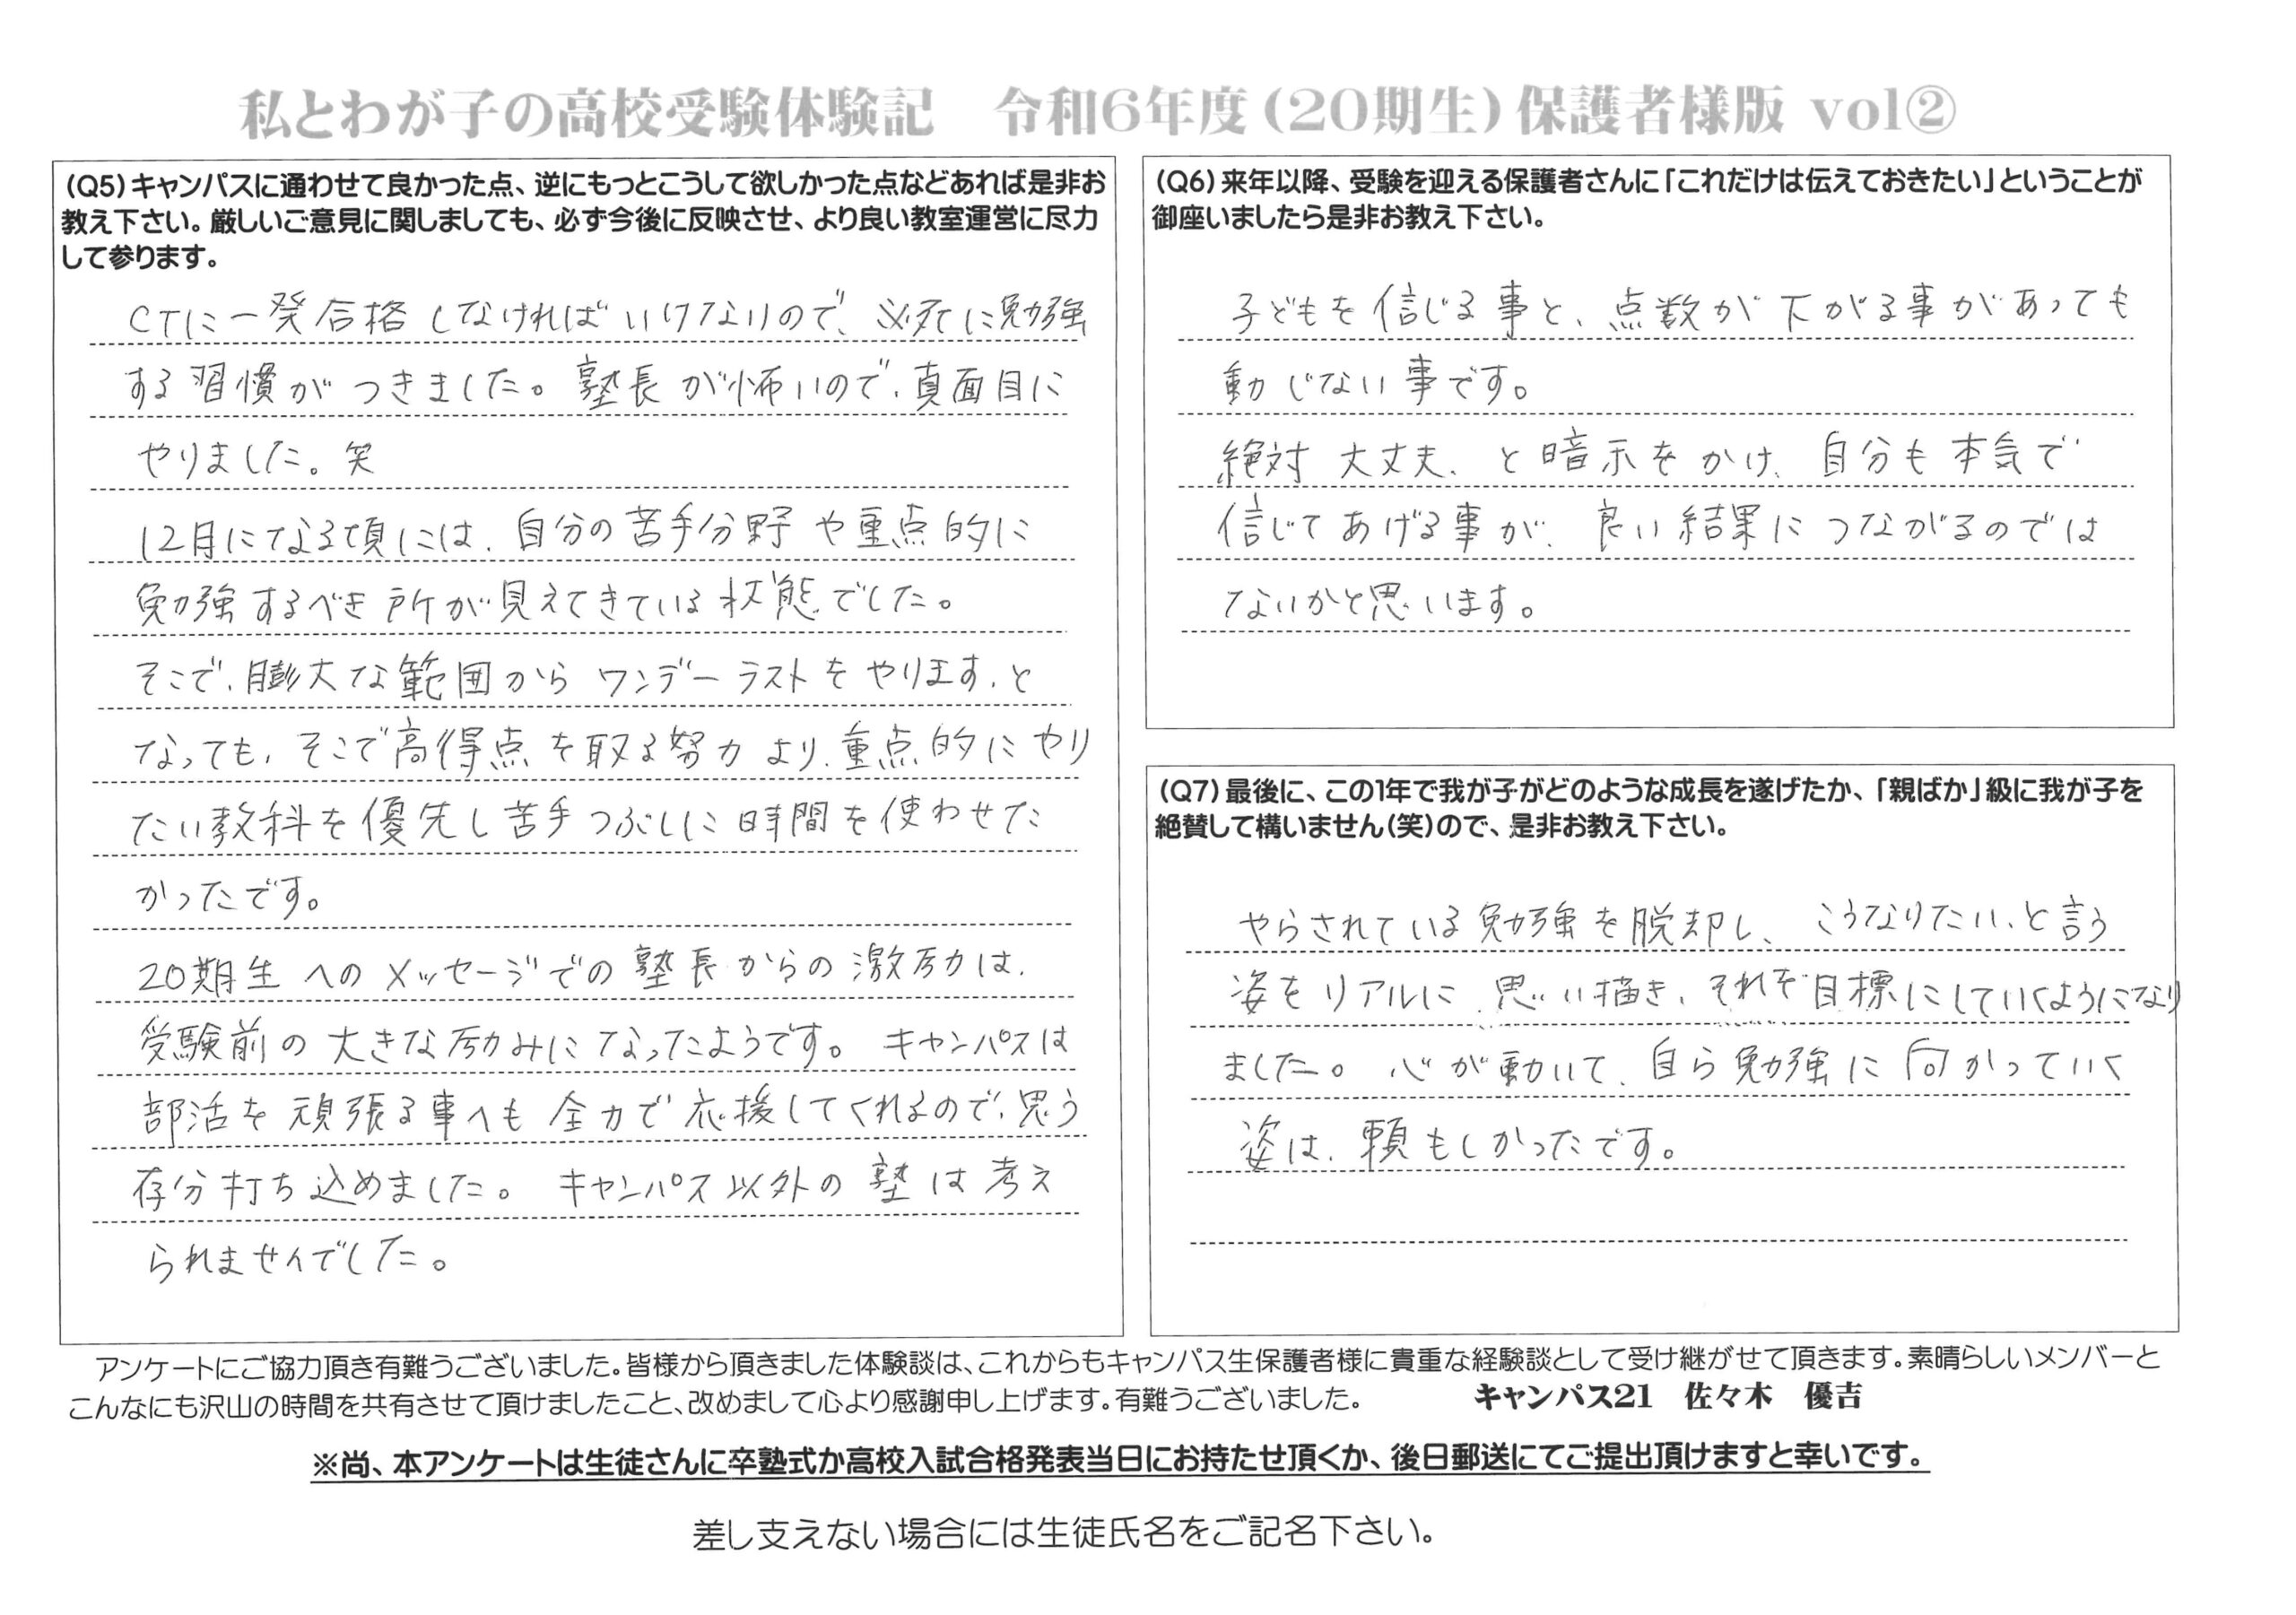 私とわが子の高校受験体験記　令和6年度(20期生)保護者様版 vol②
(Q5)キャンパスに通わせて良かった点、逆にもっとこうして欲しかった点などあれば是非お
教え下さい。厳しいご意見に関しましても、必ず今後に反映させ、より良い教室運営に尽力
して参ります。
CTに一発合格しなければいけないので、必死に勉強
する習慣がつきました。塾長が怖いので、真面目に
やりました。笑
12月になる頃には、自分の苦手分野や重点的に
勉強するべき所が見えてきている状態でした。
そこで、膨大な範囲からワンデーラストをやります、と
なっても、そこで高得点を取る努力より、重点的にやり
たい教科を優先し苦手つぶしに時間を使わせた
かったです。
20期生へのメッセージでの塾長からの激励は、
受験前の大きな励みになったようです。キャンパスは
部活を頑張る事へも全力で応援してくれるので、思う
存分打ち込めました。キャンパス以外の塾は考え
られませんでした。
(Q6)来年以降、受験を迎える保護者さんに「これだけは伝えておきたい」ということが
御座いましたら是非お教え下さい。
子どもを信じる事と、点数が下がる事があっても
動じない事です。
絶対大丈夫、と暗示をかけ、自分も本気で
信じてあげる事が、良い結果につながるのでは
ないかと思います。
(Q7)最後に、この1年で我が子がどのような成長を遂げたか、「親ばか」級に我が子を
絶賛して構いません(笑)ので、是非お教え下さい。
やらされている勉強を脱却し、こうなりたい、と言う
姿をリアルに思い描き、それを目標にしていくようになり
ました。心が動いて、自ら勉強に向かっていく
姿は、頼もしかったです。
アンケートにご協力頂き有難うございました。皆様から頂きました体験談は、これからもキャンパス生保護者様に貴重な経験談として受け継がせて頂きます。素晴らしいメンバーと
こんなにも沢山の時間を共有させて頂けましたこと、改めまして心より感謝申し上げます。有難うございました。　キャンパス21　佐々木　優吉
※尚、本アンケートは生徒さんに卒塾式か高校入試合格発表当日にお持たせ頂くか、後日郵送にてご提出頂けますと幸いです。
差し支えない場合には生徒氏名をご記名下さい。